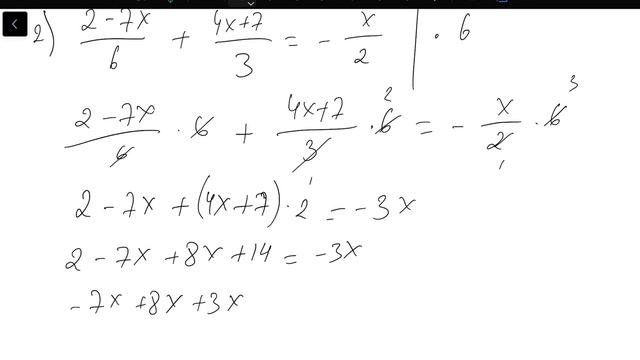 2) (2 - 7x)/6 + (4x+7)/3 = - x/2 | · 6
(2 - 7x)/6 · 6 + (4x+7)/3 1 · 6 2 = - x/2 1 · 6 3
2 - 7x + (4x+7) · 2 = - 3x
2 - 7x + 8x + 14 = - 3x
- 7x + 8x + 3x